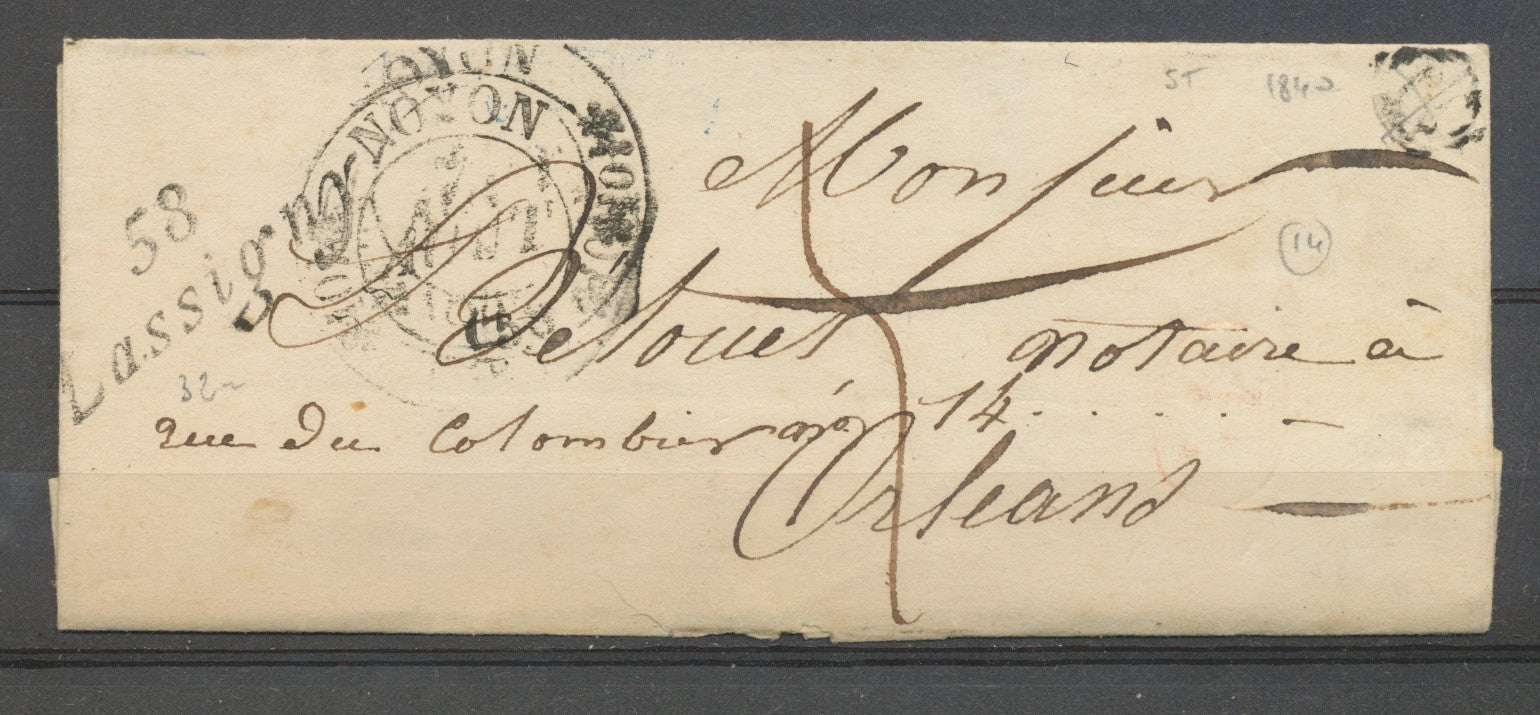 ST 1840
NOYON
NOYON
58
Lassigny
AOUT
Monsieur
14
Detouet notaire à
32
rue du Colombier no 14
Orleans